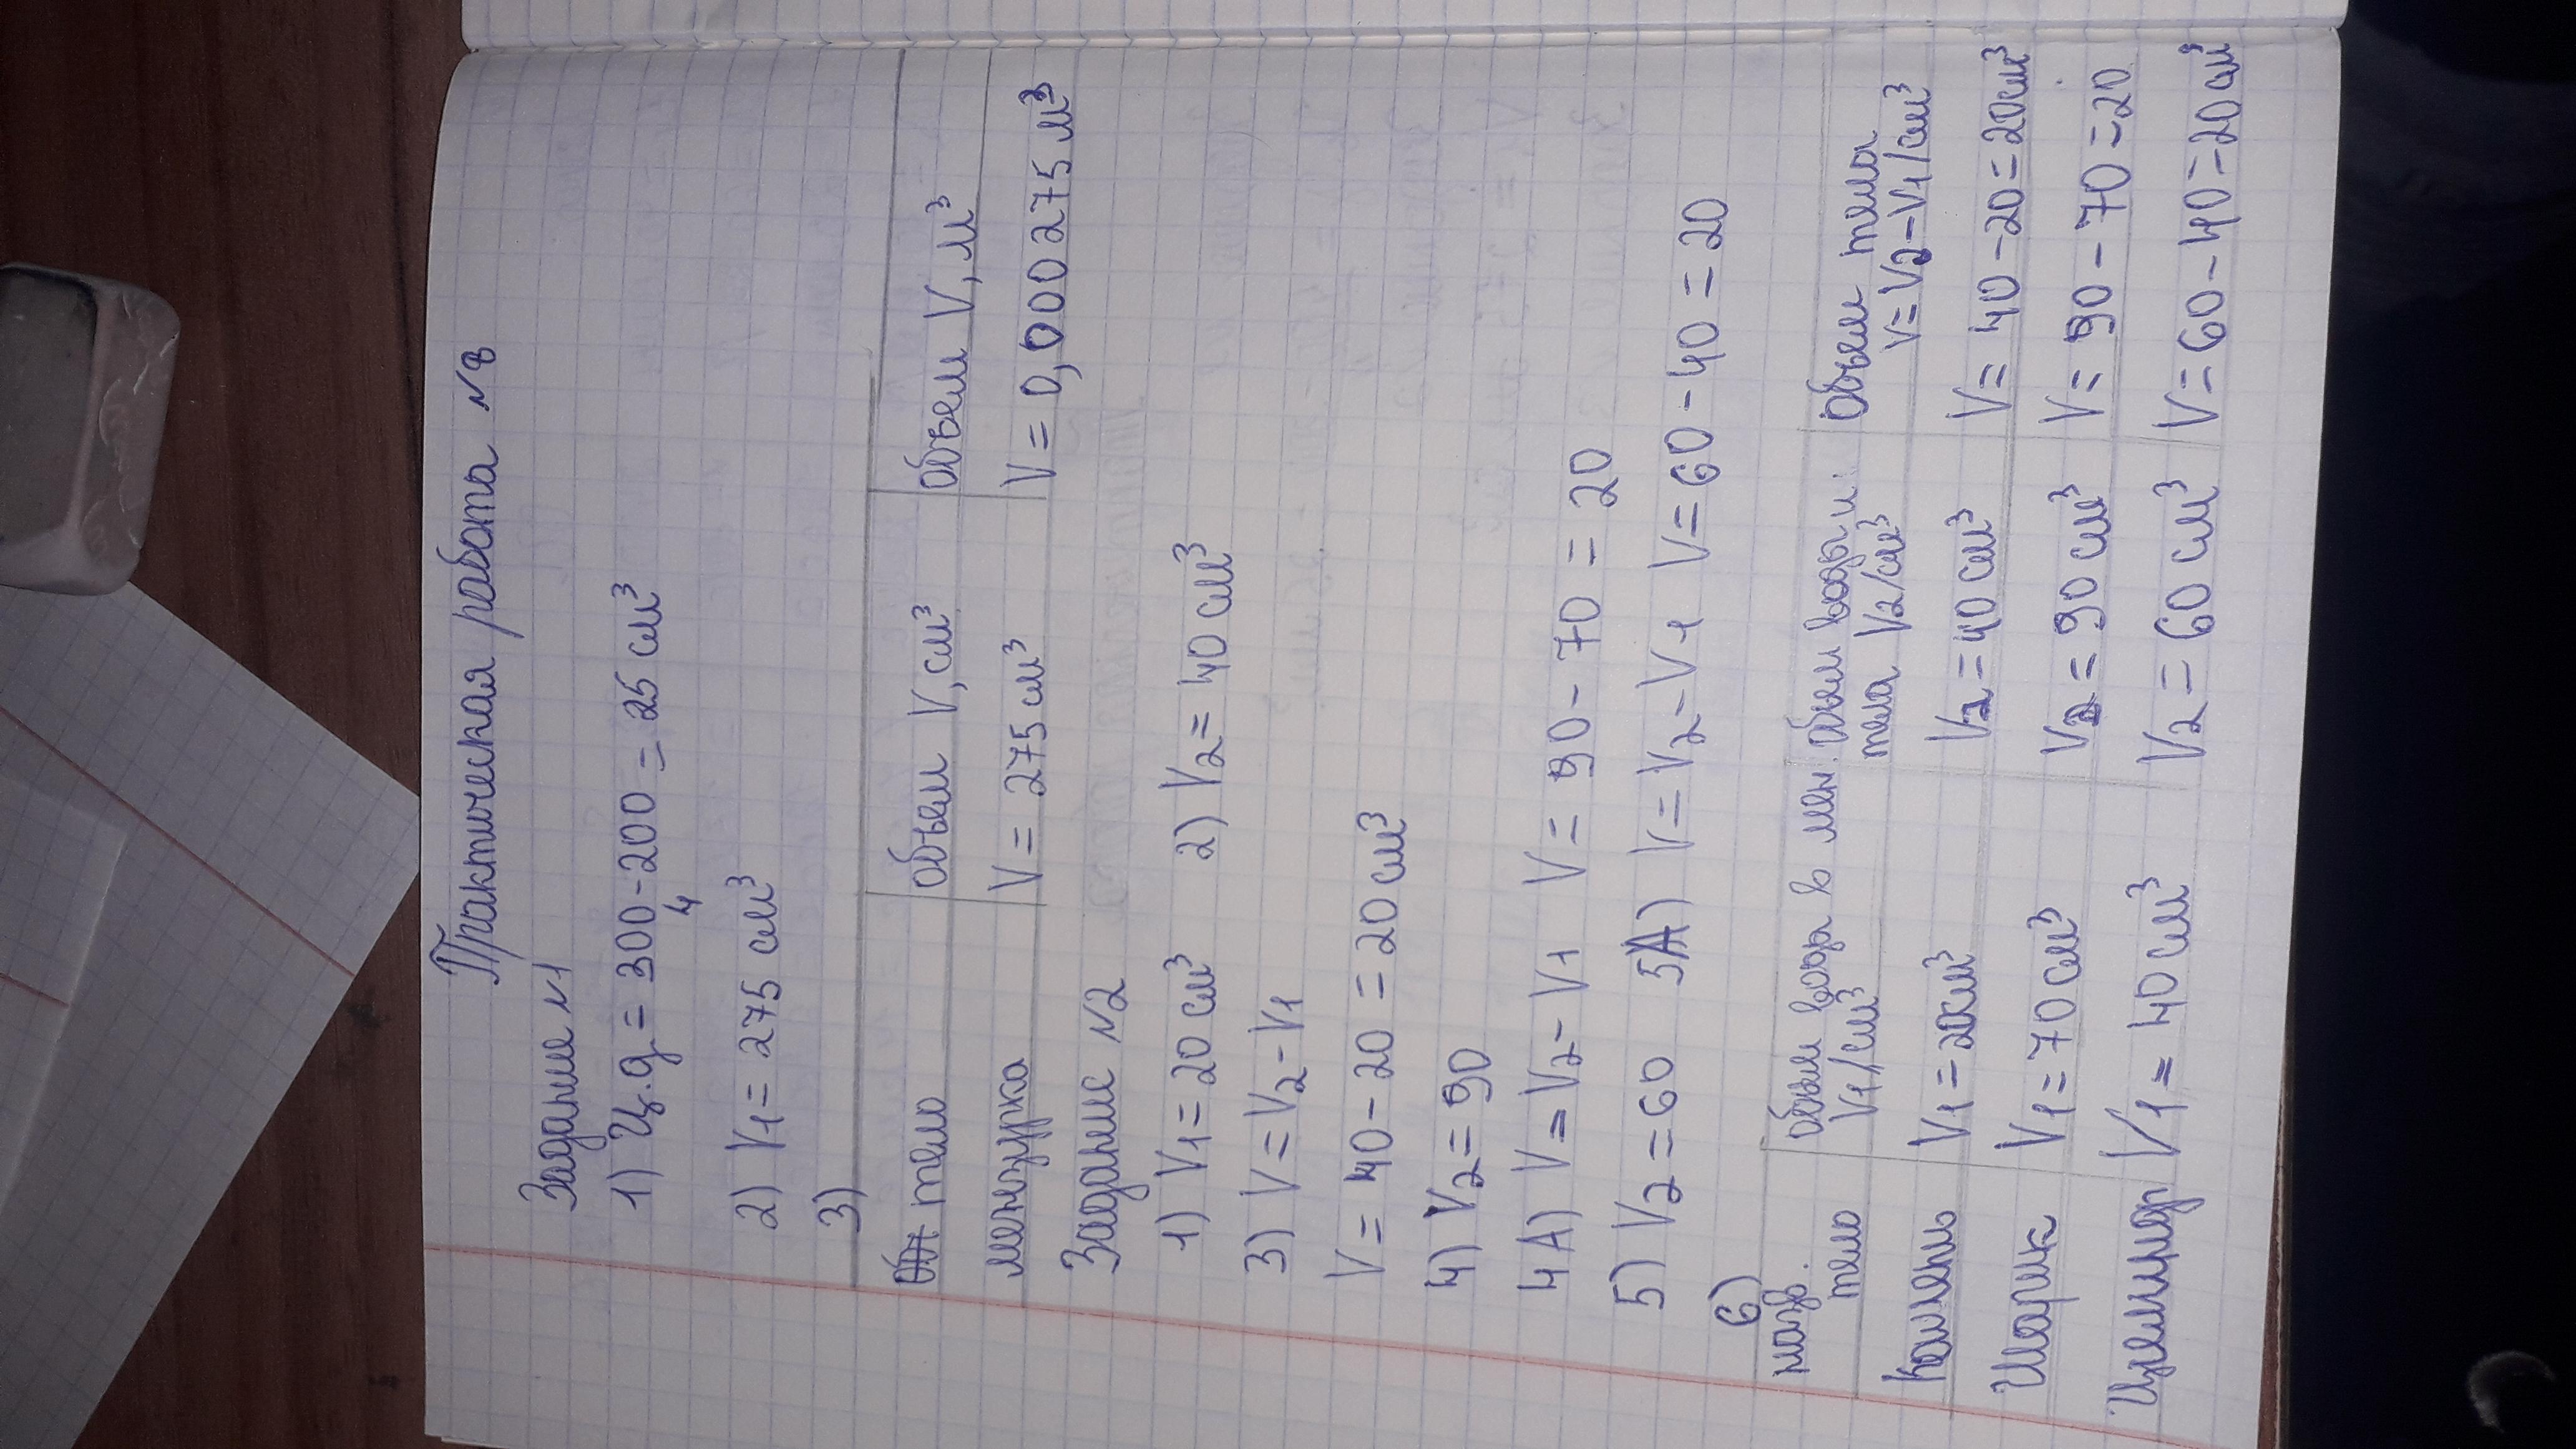 Практическая работа №8
Задание №1
1) Ц.д = 300-200 = 25 см³
4
2) V1 = 275 см³
3)
тело Объем V, см³ Объем V, м³
мензурка V = 275 см³ V = 0,000275 м³
Задание №2
1) V1 = 20 см³ 2) V2 = 40 см³
3) V = V2 - V1
V = 40 - 20 = 20 см³
4) V2 = 90
4А) V = V2 - V1 V = 90 - 70 = 20
5) V2 = 60 5А) V = V2 - V1 V = 60 - 40 = 20
6)
назв. Объем вода в мен. Объем воды и Объем тела
тело V1/см³ тела V2/см³ V = V2 - V1/см³
Камень V1 = 20см³ V2 = 40 см³ V = 40 - 20 = 20см³
Шарик V1 = 70 см³ V2 = 90 см³ V = 90 - 70 = 20
Цилиндр V1 = 40 см³ V2 = 60 см³ V = 60 - 40 = 20 см³